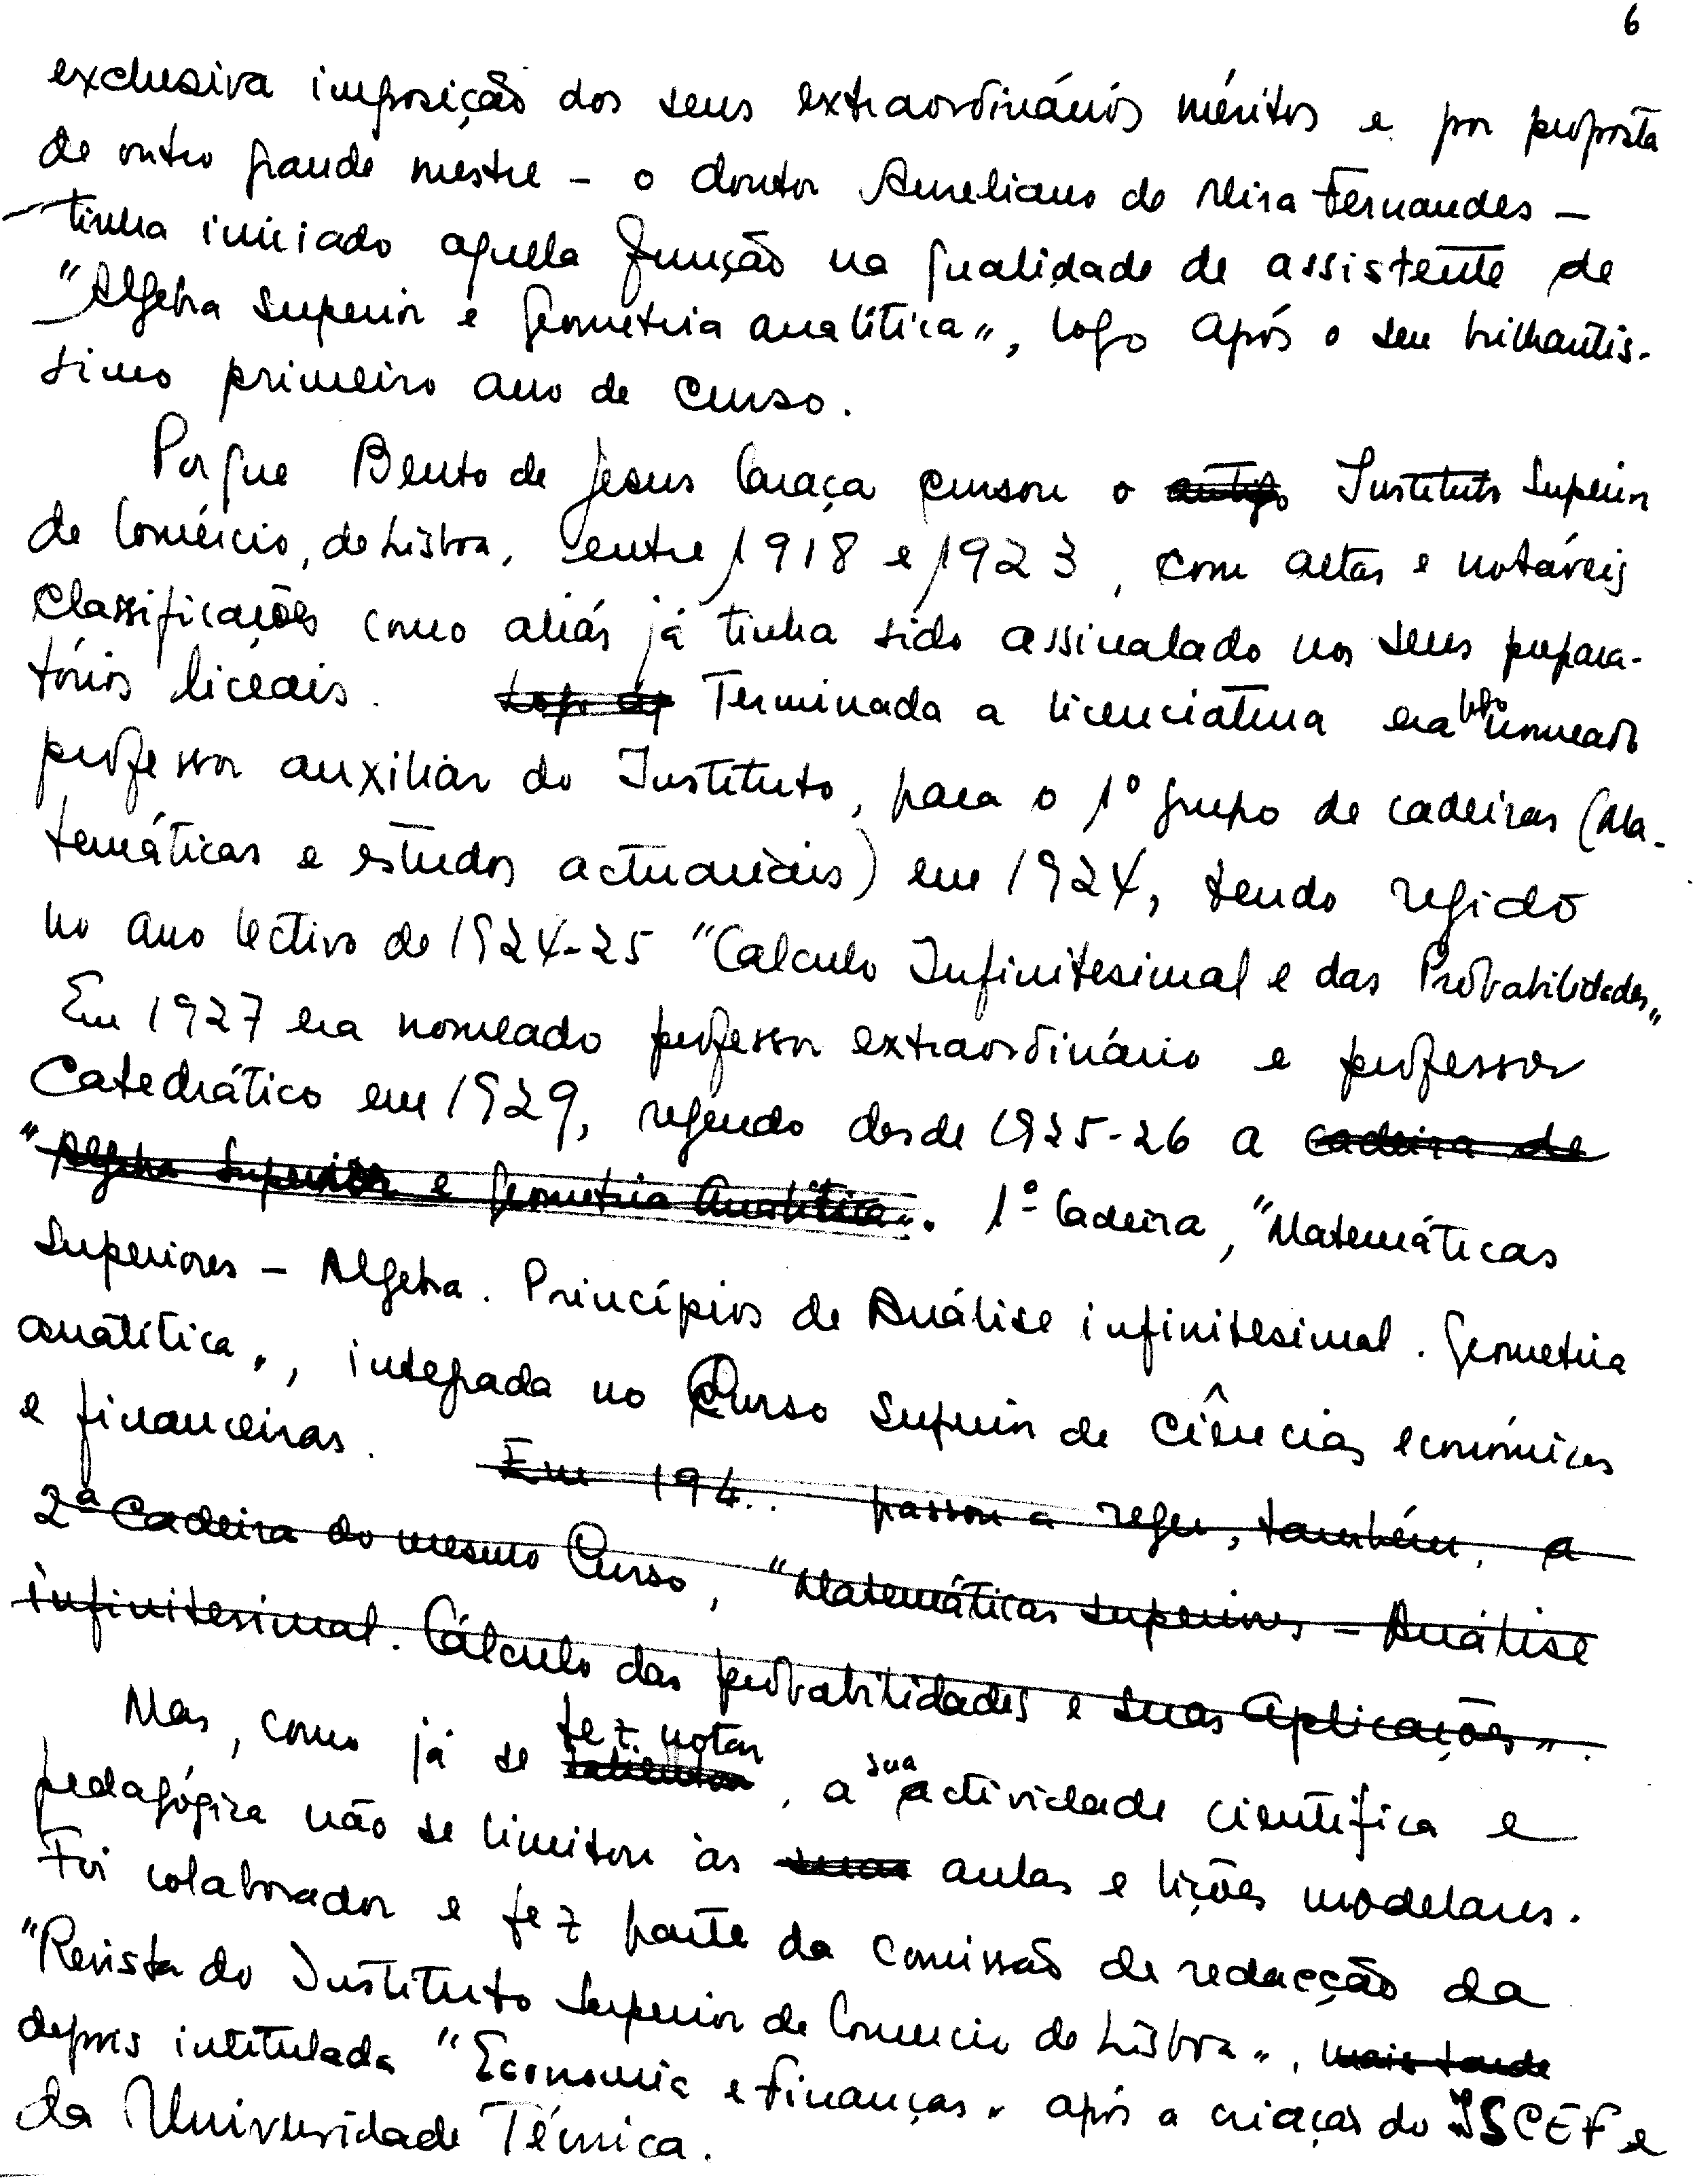 6
exclusiva imposição dos seus extraordinários méritos e por proposta
de outro grande mestre – o doutor Aureliano de Mira Fernandes –
tinha iniciado aquela função na qualidade de assistente de
"Algebra superior e geometria analítica", logo após o seu brilhantis-
simo primeiro ano de curso.
Porque Bento de Jesus Caraça cursou o antigo Instituto Superior
de Comércio, de Lisboa, entre 1918 e 1923, com altas e notáveis
classificações como aliás já tinha sido assinalado nos seus prepara-
tórios liceais. Logo ap Terminada a licenciatura era logo nomeado
professor auxiliar do Instituto, para o 1º grupo de cadeiras (Ma-
temáticas e estudos actuariais) em 1924, tendo regido
no ano lectivo de 1924-25 "Calculo Infinitesimal e das Probabilidades"
Em 1927 era nomeado professor extraordinário e professor
Catedrático em 1929, regendo desde 1925-26 a cadeira de
"Algebra Superior e Geometria Analítica". 1ª Cadeira, "Matemáticas
Superiores – Algebra. Princípios de Análise infinitesimal. Geometria
analítica", integrada no Curso Superior de Ciências económicas
e financeiras. Em 194.. passou a reger, também, a
2ª Cadeira do mesmo Curso, "Matemáticas superiores – Análise
infinitesimal. Cálculo das probabilidades e suas Aplicações".
Mas, como já se salientou fez notar, a sua actividade científica e
pedagógica não se limitou às suas aulas e lições modelares.
Foi colaborador e fez parte da comissão de redacção da
"Revista do Instituto Superior de Comercio de Lisboa", mais tarde
depois intitulada "Economia e Finanças" após a criação do ISCEF e
da Universidade Técnica.